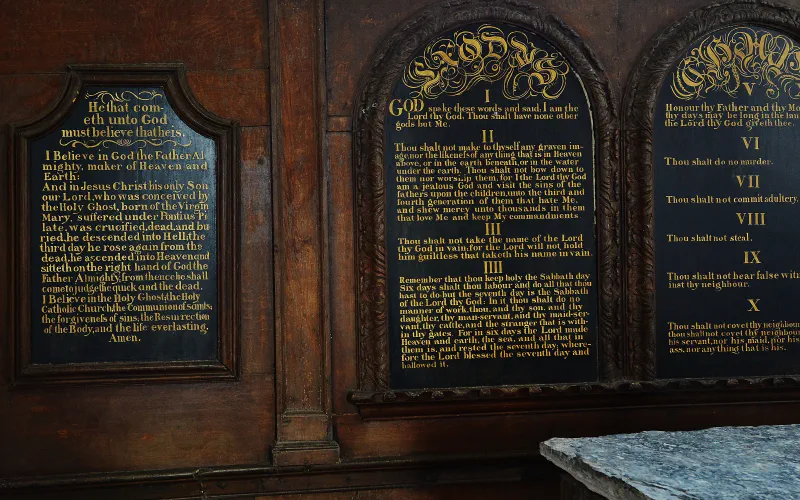 He that com-
eth unto God
must believe that he is.
I Believe in God the Father Al
mighty, maker of Heaven and
Earth:
And in Jesus Christ his only Son
our Lord, who was conceived by
the Holy Ghost, born of the Virgin
Mary, suffered under Pontius Pi
late, was crucified, dead, and bu
ried, he descended into Hell; the
third day he rose again from the
dead, he ascended into Heaven and
sitteth on the right hand of God the
Father Almighty, from thence he shall
come to judge the quick and the dead.
I Believe in the Holy Ghost; the Holy
Catholic Church; the Communion of saints,
the forgiveness of sins, the Resurrection
of the Body, and the life everlasting.
Amen.
EXODUS
I
GOD spake these words and said, I am the
Lord thy God. Thou shalt have none other
gods but Me.
II
Thou shalt not make to thyself any graven im-
age, nor the likeness of any thing that is in Heaven
above, or in the earth beneath, or in the water
under the earth. Thou shalt not bow down to
them nor worship them, for I the Lord thy God
am a jealous God and visit the sins of the
fathers upon the children, unto the third and
fourth generation of them that hate Me,
and shew mercy unto thousands in them
that love Me and keep My commandments
III
Thou shalt not take the name of the Lord
thy God in vain, for the Lord will not hold
him guiltless that taketh his name in vain.
IIII
Remember that thou keep holy the Sabbath day
Six days shalt thou labour and do all that thou
hast to do but the seventh day is the Sabbath
of the Lord thy God: In it thou shalt do no
manner of work, thou, and thy son, and thy
daughter, thy man-servant, and thy maid-ser-
vant, thy cattle, and the stranger that is with-
in thy gates. For in six days the Lord made
Heaven and earth, the sea, and all that in
them is, and rested the seventh day; where-
fore the Lord blessed the seventh day and
hallowed it.
V
Honour thy Father and thy Mo
thy days may be long in the lan
the Lord thy God giveth thee.
VI
Thou shalt do no murder.
VII
Thou shalt not commit adultery.
VIII
Thou shalt not steal.
IX
Thou shalt not bear false wit
inst thy neighbour.
X
Thou shalt not covet thy neighbou
thou shalt not covet thy neighbour
his servant, nor his maid, nor his
ass, nor any thing that is his.